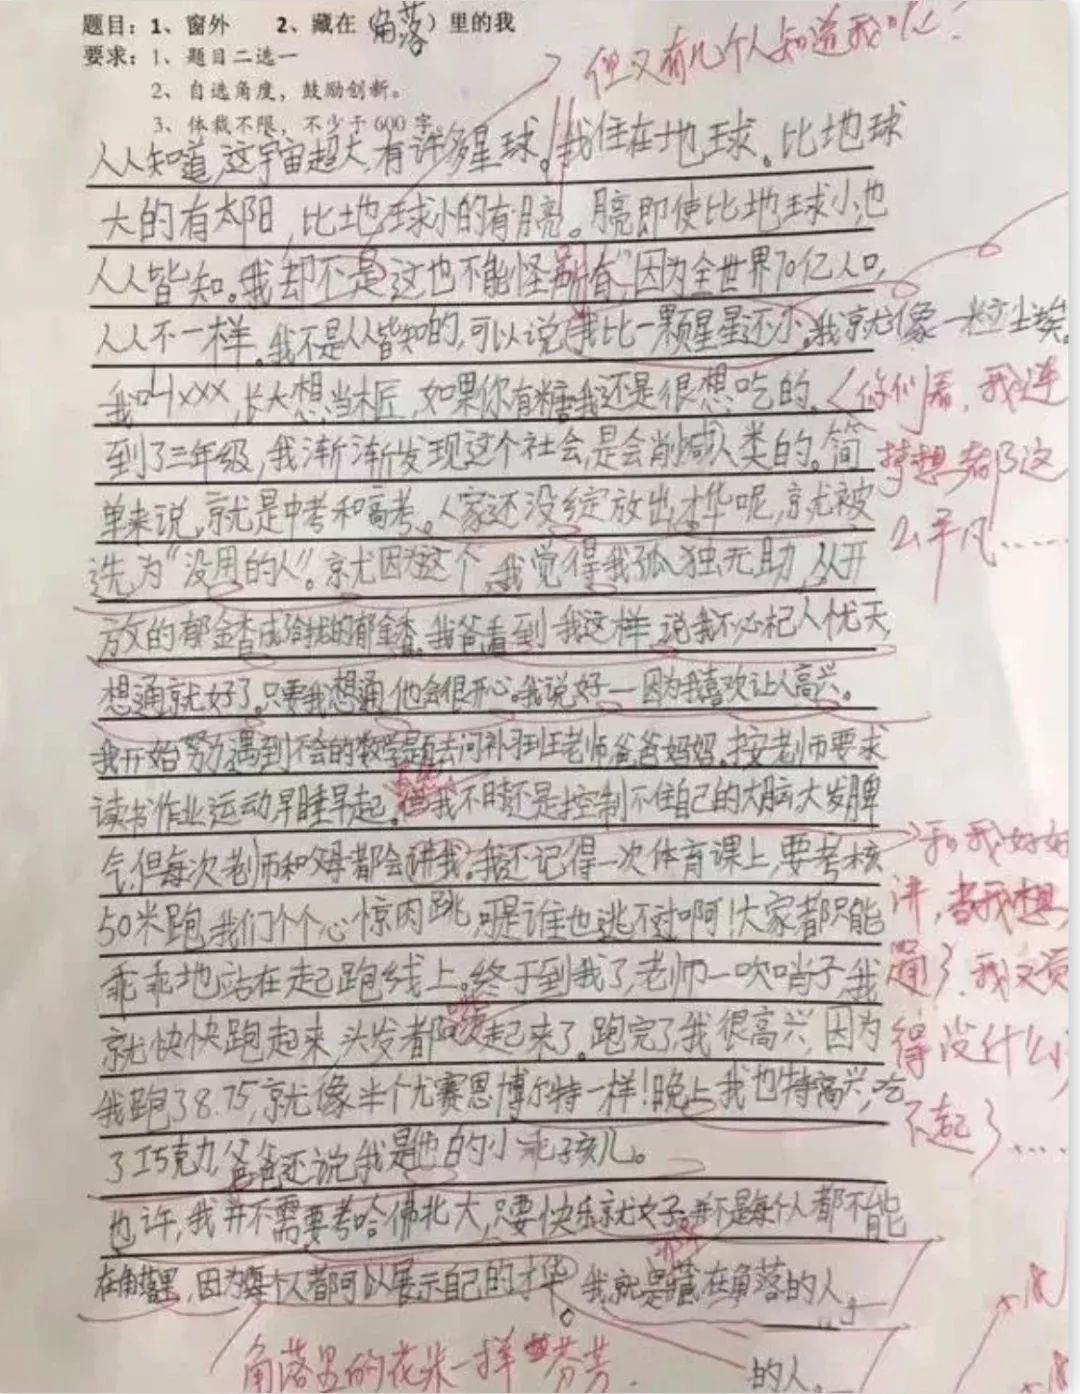 题目：1、窗外　2、藏在（角落）里的我
要求：1、题目二选一
2、自选角度，鼓励创新。
3、体裁不限，不少于600字
但又有几个人知道我呢？
人人知道,这宇宙超大,有许多星球。我住在地球。比地球
大的有太阳,比地球小的有月亮。月亮即使比地球小,也
人人皆知。我却不是这也不能怪别人,因为全世界70亿人口,
人人不一样。我不是人人皆知的,可以说我比一颗星星还小。我就像一粒尘埃。
我叫xxx,长大想当木匠,如果你有糖我还是很想吃的。
你们看，我连
到了三年级,我渐渐发现这个社会,是会削减人类的。简
梦想都这
单来说,就是中考和高考。人家还没绽放出才华呢,就被
么平凡……
选为“没用的人”。就因为这个,我觉得我孤独无助,从开
放的郁金香成含拢的郁金香。我爸看到我这样,说我不必杞人忧天,
想通就好了。只要我想通,他会很开心。我说好——因为我喜欢让人高兴。
我开始努力,遇到不会的数学题去问补习班老师,爸爸妈妈。按老师要求
读书作业运动早睡早起。但我不时还是控制不住自己的大脑大发脾
气,但每次老师和父母都会讲我。我还记得一次体育课上,要考核
和我好好
50米跑,我们个个心惊肉跳,可是谁也逃不过啊!大家都只能
讲，当我想
乖乖地站在起跑线上。终于到我了,老师一吹哨子,我
通了，我又觉
就快快跑起来,头发都吹起来了。跑完了我很高兴,因为
得没什么
我跑了8.75,就像半个尤赛恩博尔特一样!晚上我也特高兴,吃
不起了……
了巧克力,爸爸还说我是他的小乖孩儿。
也许,我并不需要考哈佛北大,只要快乐就好。并不是每个人都不能
在角落里,因为每个人都可以展示自己的才华。我就是藏在角落的人
角落里的花朵一样芬芳.
的人.